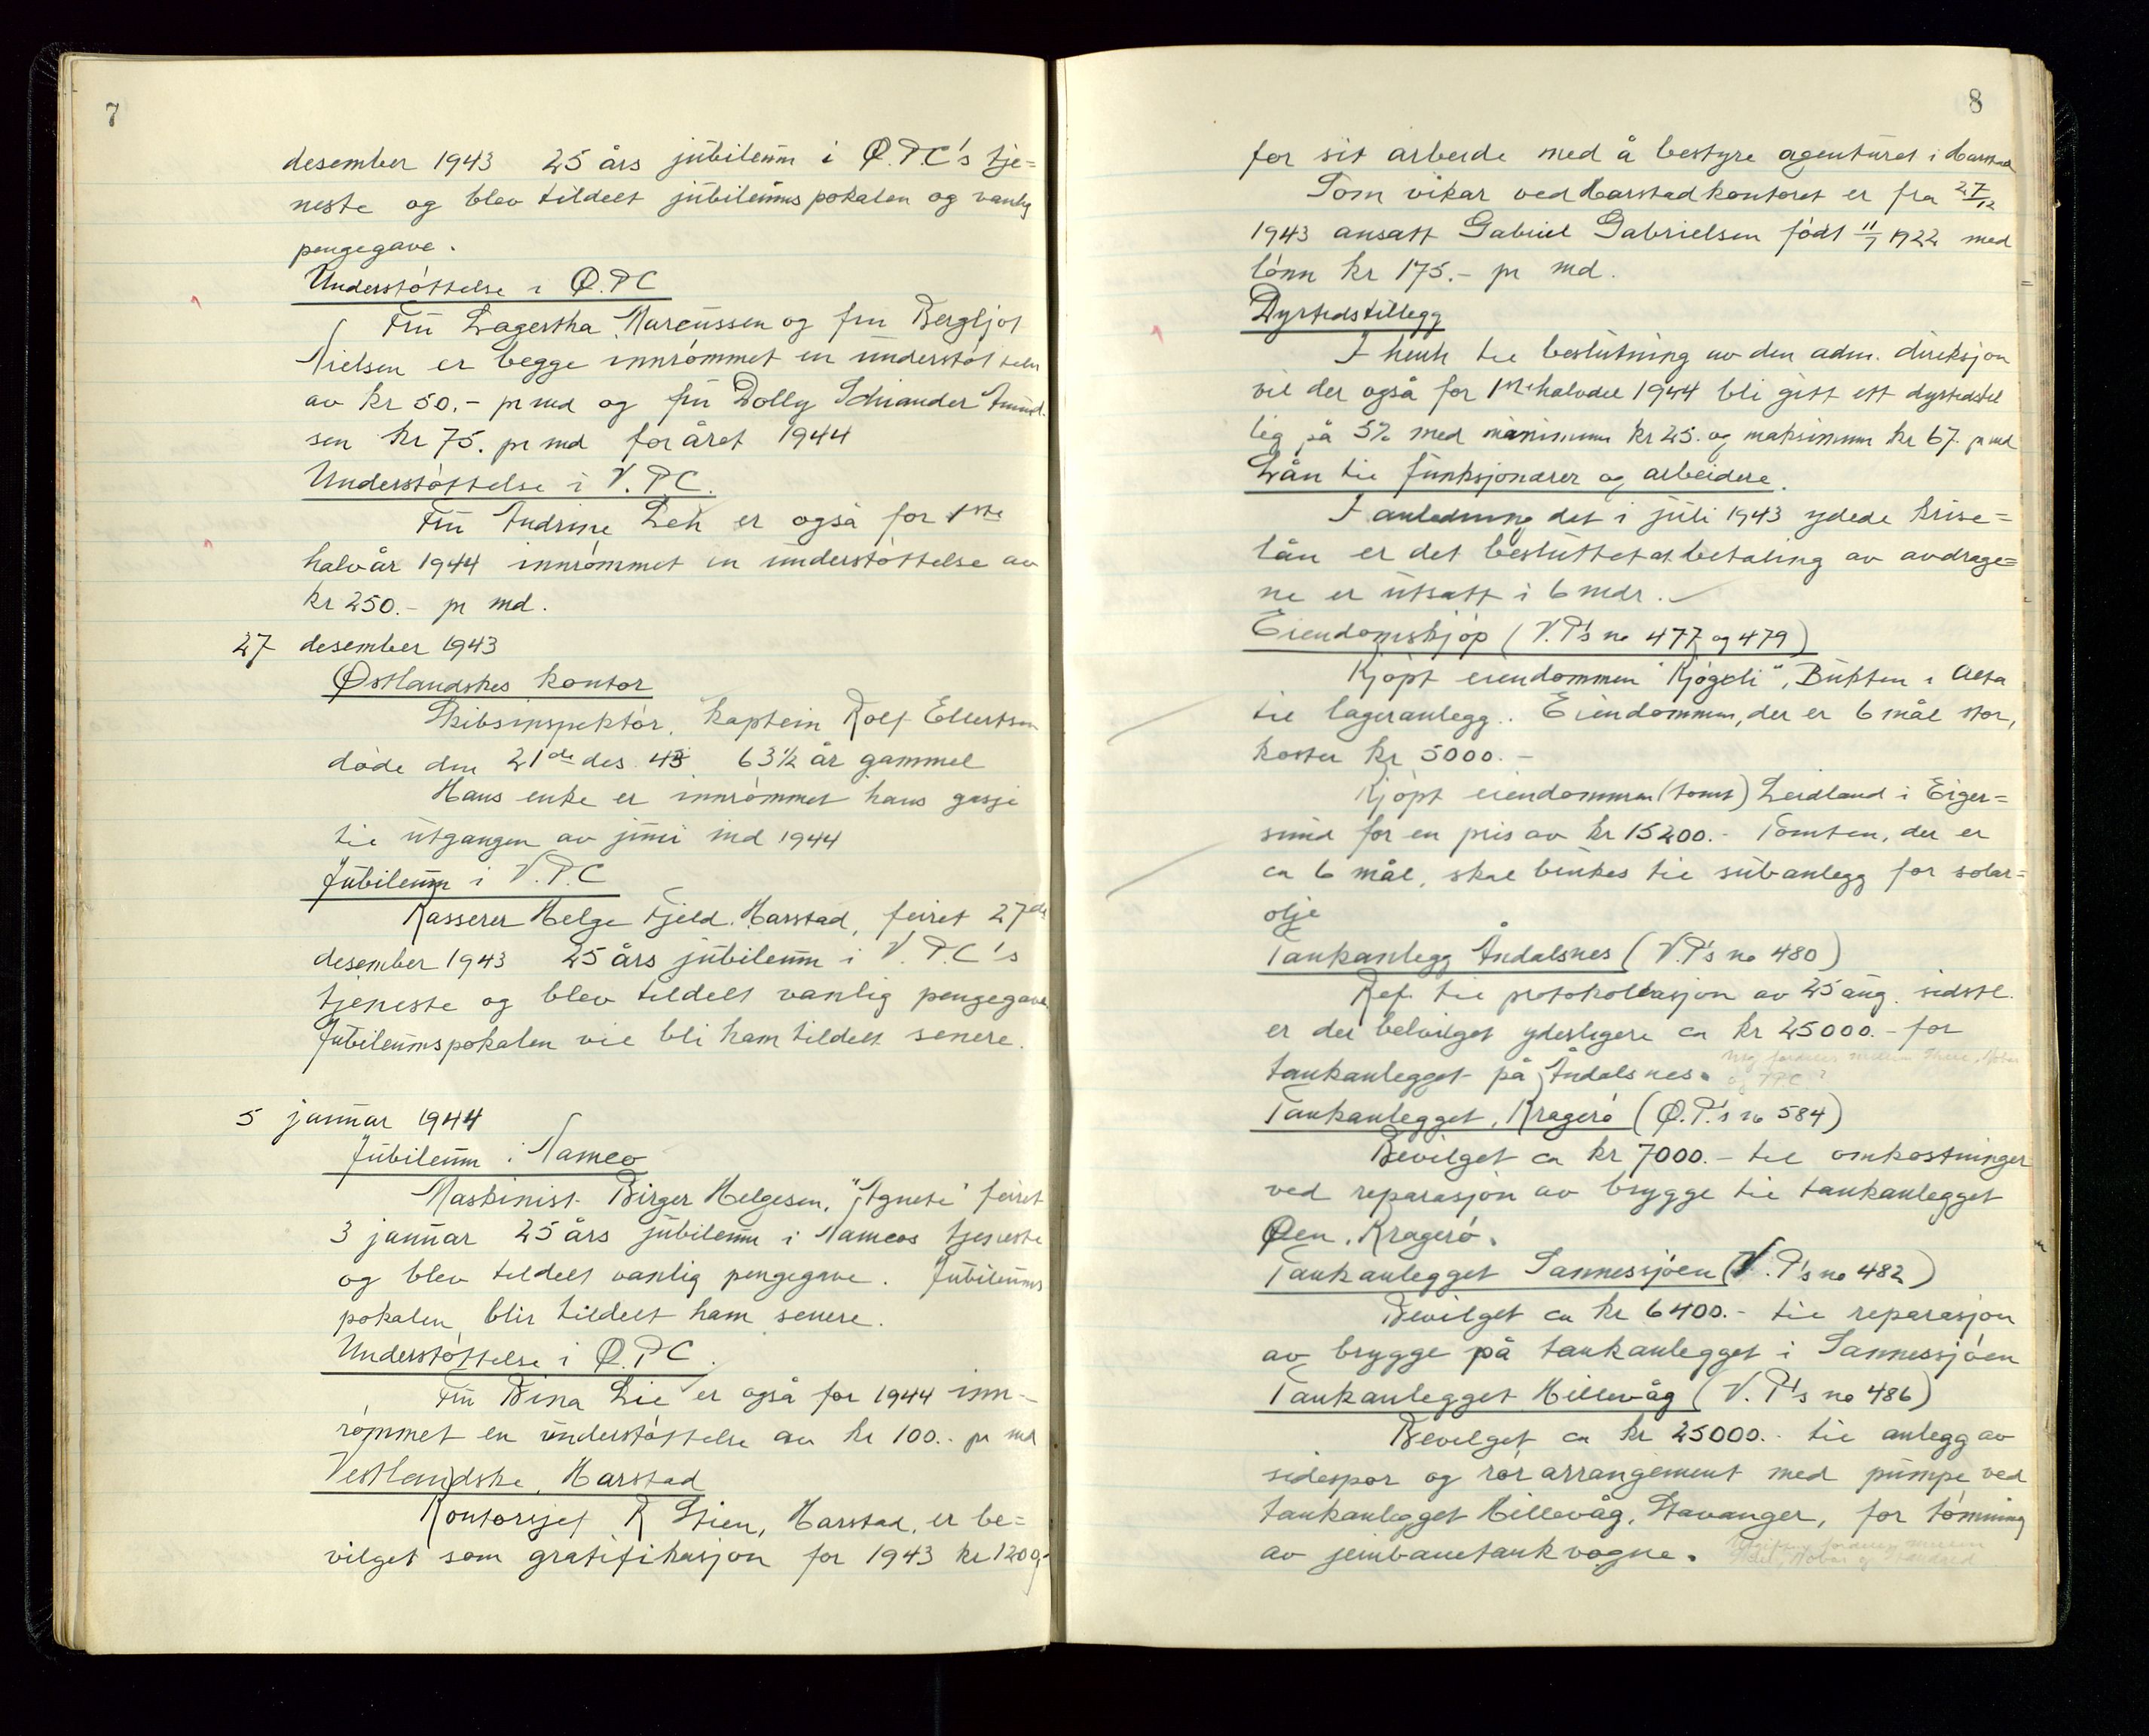 7
desember 1943 25 års jubileum i Ø.P.C's tje=
neste og blev tildelt jubileumspokalen og vanlig
pengegave.
Understøttelse i Ø.P.C
Fru Lagertha Marcussen og fru Bergljot
Nielsen er begge innrømmet en understøttelse
av kr 50.- pr md og fru Dolly Schiander Amund
sen kr 75. pr md for året 1944
Understøttelse i V.P.C.
Fru Andrine Leh er også for 1ste
halvår 1944 innrømmet en understøttelse av
kr 250.- pr md.
27 desember 1943
Østlandskes kontor
Skibsinspektør, kaptein Rolf Ellertsen
døde den 21de des. 43 63½ år gammel
Hans enke er innrømmet hans gasje
til utgangen av juni md 1944
Jubileum i V.P.C
Kasserer Helge Fjeld, Harstad, feiret 27de
desember 1943 25 års jubileum i V.P.C's
tjeneste og blev tildelt vanlig pengegave
Jubileumspokalen vil bli ham tildelt senere.
5 januar 1944
Jubileum i Nameo
Maskinist Birger Helgesen, "Agnete" feiret
3 januar 25 års jubileum i Nameos tjeneste
og blev tildelt vanlig pengegave. Jubileums
pokalen blir tildelt ham senere.
Understøttelse i Ø.P.C.
Fru Dina Lie er også for 1944 inn-
rømmet en understøttelse av kr 100.- pr md
Vestlandske, Harstad
Kontorsjef R Stien, Harstad, er be=
vilget som gratifikasjon for 1943 kr 1200.-
8
for sit arbeide med å bestyre agenturet i Harstad
Som vikar ved Harstadkontoret er fra 27/12
1943 ansatt Gabriel Gabrielsen født 11/7 1922 med
lønn kr 175.- pr md.
Dyrtidstillegg
I henh til beslutning av den adm. direksjon
vil der også for 1ste halvdel 1944 bli gitt ett dyrtidstil
leg på 5% med minimum kr 25. og maksimum kr 67. pr md
Lån til funksjonærer og arbeidere.
I anledning det i juli 1943 ydede krise=
lån er det besluttet at betaling av avdrage=
ne er utsatt i 6 mdr.
Eiendomskjøp (V.P's no 477 og 479)
Kjøpt eiendommen "Kjøgeli", Bukten i Alta
til lageranlegg.. Eiendommen, der er 6 mål stor,
koster kr 5000.-
Kjøpt eiendommen (tomt) Leidland i Eiger=
sund for en pris av kr 15200.- Tomten, der er
ca 6 mål, skal brukes til subanlegg for solar=
olje
Tankanlegg Åndalsnes (V.P's no 480)
Ref. til protokollasjon av 25 aug. sidstl.
er der belvilget yderligere ca kr 25000.- for
tankanlegget på Åndalsnes.
Tankanlegget, Kragerø (Ø.P.'s no 584)
Bevilget ca kr 7000.- til omkostninger
ved reparasjon av brygge til tankanlegget
Øen, Kragerø.
Tankanlegget Sannessjøen (V.P's no 482)
Bevilget ca kr 6400.- til reparasjon
av brygge på tankanlegget i Sannessjøen
Tankanlegget Hillevåg (V.P's no 486)
Bevilget ca kr 25000.- til anlegg av
sidespor og rør arrangement med pumpe ved
tankanlegget Hillevåg, Stavanger, for tømning
av jernbanetankvogne.